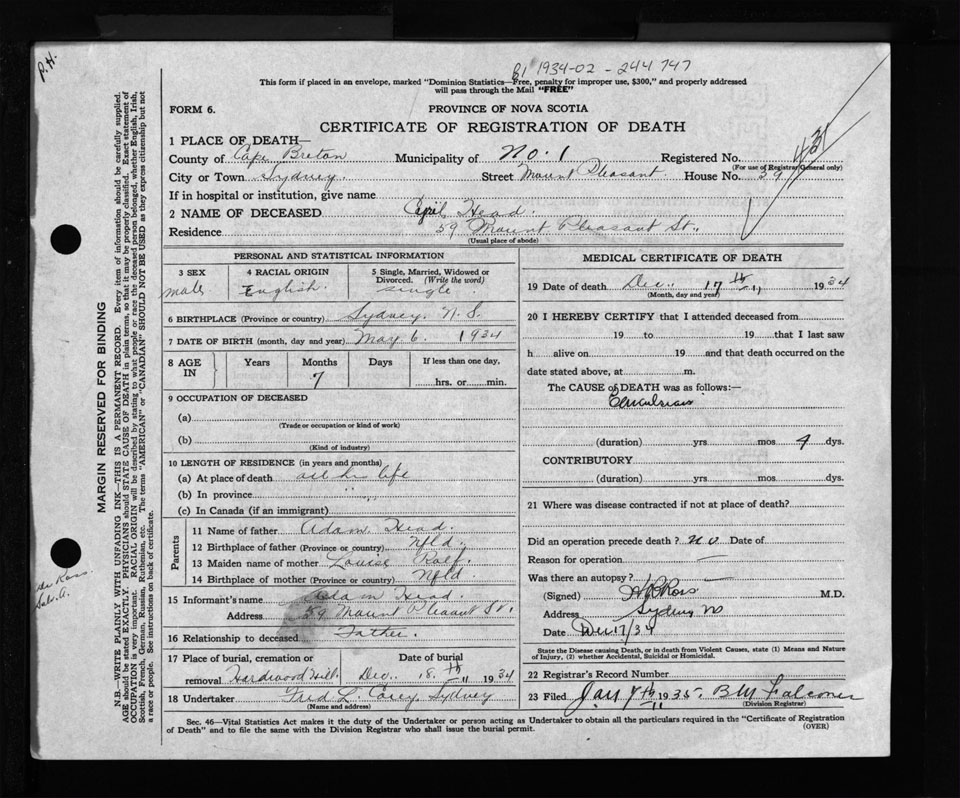 P.H.
B1 1934-02-244747
This form if placed in an envelope, marked "Dominion Statistics—Free, penalty for improper use, $300," and properly addressed
will pass through the Mail "FREE"
FORM 6.
PROVINCE OF NOVA SCOTIA
CERTIFICATE OF REGISTRATION OF DEATH
1 PLACE OF DEATH—
County of Cape Breton Municipality of No. 1 Registered No.
(For use of Registrar General only)
City or Town Sydney. Street Mount Pleasant House No.
If in hospital or institution, give name
2 NAME OF DECEASED Head.
Residence 59 Mount Pleasant St.,
(Usual place of abode)
PERSONAL AND STATISTICAL INFORMATION
3 SEX
male
4 RACIAL ORIGIN
English.
5 Single, Married, Widowed or
Divorced. (Write the word)
single.
6 BIRTHPLACE (Province or country) Sydney, N.S.
7 DATE OF BIRTH (month, day and year) May 6. 1934
8 AGE
IN
Years
Months
7
Days
If less than one day,
hrs. or min.
9 OCCUPATION OF DECEASED
(a)
(Trade or occupation or kind of work)
(b)
(Kind of industry)
10 LENGTH OF RESIDENCE (in years and months)
(a) At place of death all his life
(b) In province " "
(c) In Canada (if an immigrant)
Parents
11 Name of father Adam Head.
12 Birthplace of father (Province or country) Nfld.
13 Maiden name of mother Louise
14 Birthplace of mother (Province or country) Nfld.
15 Informant's name Adam Head.
Address 59 Mount Pleasant St.
16 Relationship to deceased Father.
17 Place of burial, cremation or Date of burial
removal Hardwood Hill Dec. 18th 1934
18 Undertaker Fred L. Curry, Sydney
(Name and address)
MEDICAL CERTIFICATE OF DEATH
19 Date of death Dec. 17th 1934
(Month, day and year)
20 I HEREBY CERTIFY that I attended deceased from
19 to 19 that I last saw
h alive on 19 and that death occurred on the
date stated above, at m.
The CAUSE OF DEATH was as follows:—
(duration) yrs mos 4 dys.
CONTRIBUTORY
(duration) yrs mos dys.
21 Where was disease contracted if not at place of death?
Did an operation precede death? no Date of
Reason for operation —
Was there an autopsy? —
(Signed) Ross M.D.
Address Sydney
Date Dec 17/34
State the Disease causing Death, or in death from Violent Causes, state (1) Means and Nature
of Injury, (2) whether Accidental, Suicidal or Homicidal.
22 Registrar's Record Number
23 Filed Jany 1935. B M Falconer
(Division Registrar)
Sec. 46—Vital Statistics Act makes it the duty of the Undertaker or person acting as Undertaker to obtain all the particulars required in the "Certificate of Registration
of Death" and to file the same with the Division Registrar who shall issue the burial permit.
(OVER)
MARGIN RESERVED FOR BINDING
N.B.—WRITE PLAINLY WITH UNFADING INK—THIS IS A PERMANENT RECORD. Every item of information should be carefully supplied.
AGE should be stated EXACTLY. PHYSICIANS should STATE CAUSE OF DEATH in plain terms, so that it may be properly classified. Exact statement of
OCCUPATION is very important. RACIAL ORIGIN will be described by stating to what people or race the deceased person belonged, whether English, Irish,
Scottish, French, German, Russian, Ruthenian, etc. The terms "AMERICAN" or "CANADIAN" SHOULD NOT BE USED as they express citizenship but not
a race or people. See instructions on back of certificate.